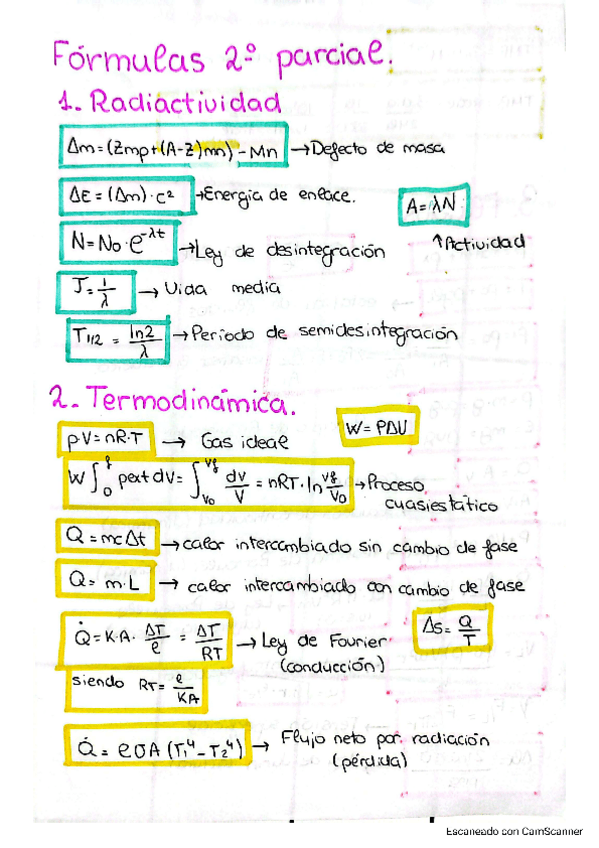 Fórmulas 2º parcial.
1. Radiactividad
Δm = (Zmp + (A-Z)mn) - Mn → Defecto de masa
ΔE = (Δm)·c² → Energía de enlace.
A = λN
↑ Actividad
N = No·e^-λt → Ley de desintegración
T = 1/λ → Vida media
T1/2 = ln2/λ → Período de semidesintegración
2. Termodinámica.
W = PΔU
pV = nR·T → Gas ideal
W ∫₀^f pext dV = ∫_Vo^Vf dV/V = nRT·ln Vf/Vo → Proceso
cuasiestático
Q = mcΔt → calor intercambiado sin cambio de fase
Q = m·L → calor intercambiado con cambio de fase
Q̇ = K·A· ΔT/e = ΔT/RT → Ley de Fourier
(conducción)
ΔS = Q/T
siendo RT = e/KA
Q̇ = eσA(T₁⁴ - T₂⁴) → Flujo neto por radiación
(pérdida)
Escaneado con CamScanner